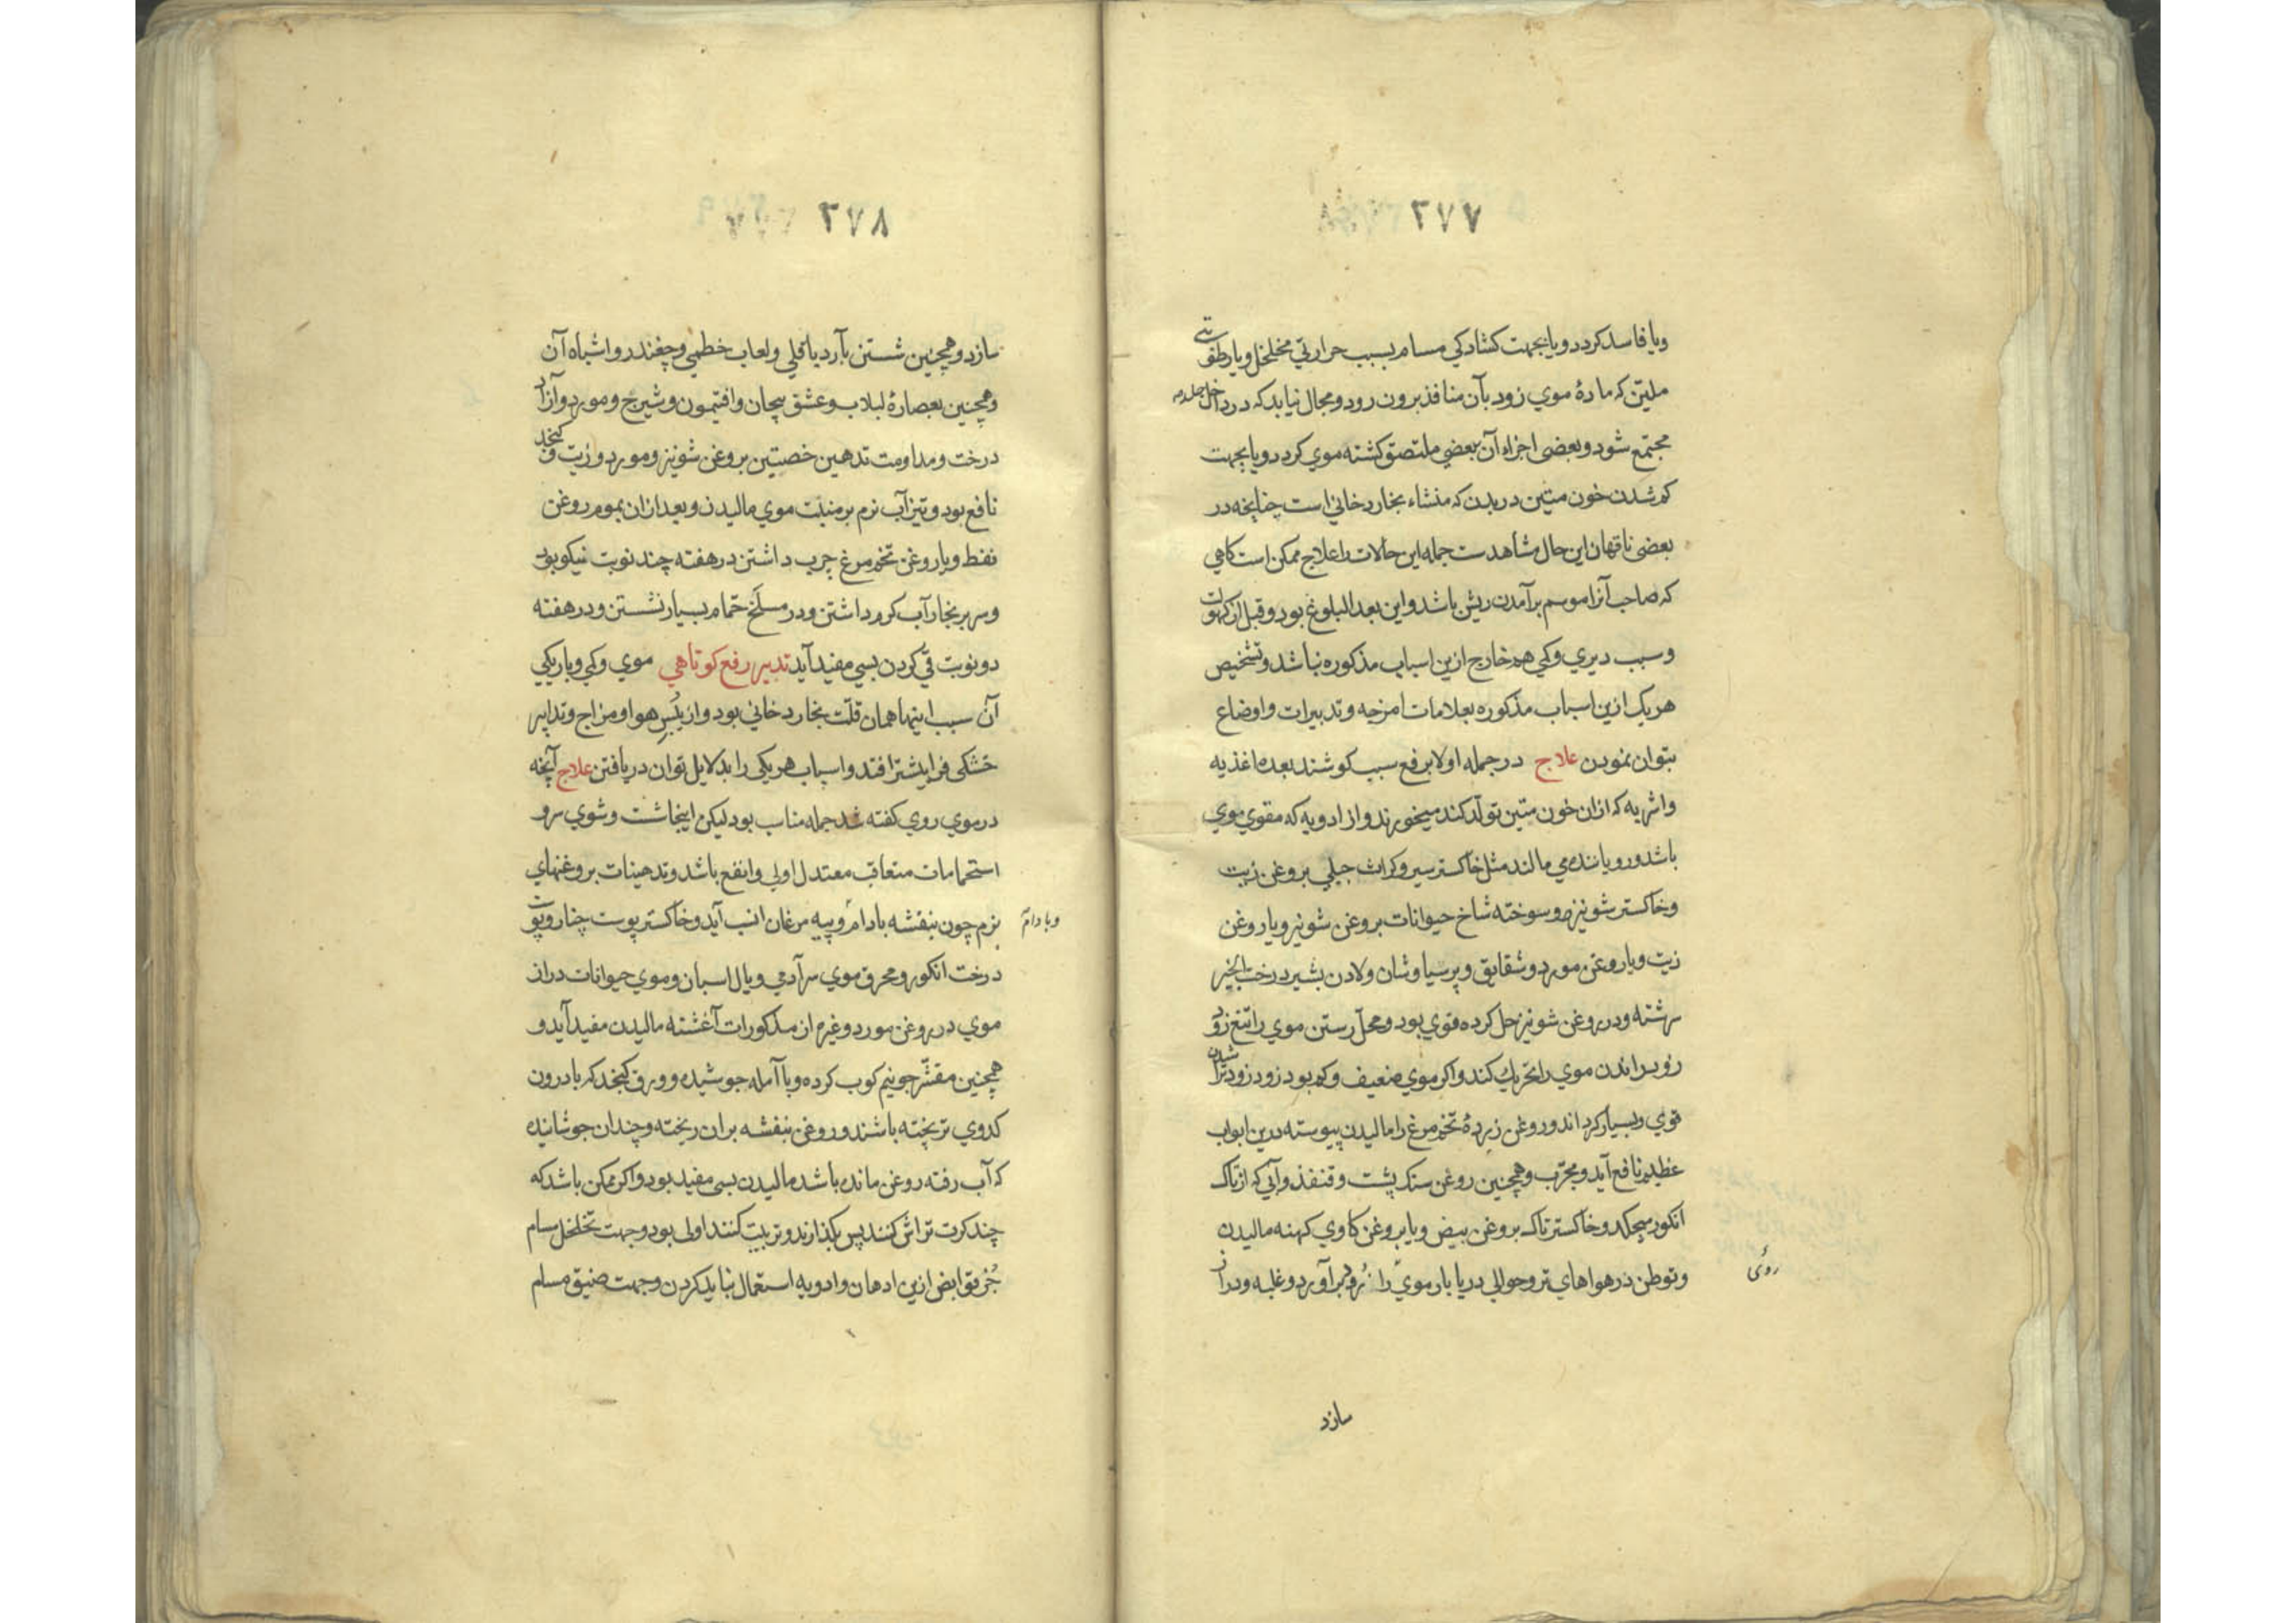 ٣٧٧
ويا فاسد كردد ويا بجهت كشادكي مسام بسبب حرارتي مخلخل ويا رطوبتي
مليّن كه مادهٔ موي زود بآن منافذ برون رود ومجال نيابد كه در داخل جلد
مجتمع شود وبعضى اجزاء آن ببعضي ملتصق كشته موي كردد ويا بجهت
كم شدن خون متين در بدن كه منشاء بخار دخاني است چنانچه در
بعضى ناقهان اين حال مشاهدست جمله اين حالات را علاج ممكن است كاهي
كه صاحب آنرا موسم برآمدن ريش باشد واين بعد البلوغ بود وقبل از كهولت
وسبب ديري وكمي هم خارج ازين اسباب مذكوره نباشد وتشخيص
هر يك ازين اسباب مذكوره بعلامات امزجه وتدبيرات واوضاع
بتوان نمودن علاج در جمله اولا برفع سبب كوشند بعده اغذيه
واشربه كه ازان خون متين تولّد كند ميخورند واز ادويه كه مقوي موي
باشد ورويانده مي مالند مثل خاكستر سير وكراث جبلي بروغن زيت
وخاكستر شونيز وسوخته شاخ حيوانات بروغن شونيز ويا روغن
زيت ويا روغن مورد وشقايق وپرسياوشان ولادن بشير درخت انجير
سرشته ودر روغن شونيز حل كرده قوي بود ومحلّ رستن موي را تيغ زود
زود راندن موي را تحريك كند واكر موي ضعيف وكم بود زود زود تراشيدن
قوي وبسيار كرداند وروغن زردهٔ تخم مرغ را ماليدن پيوسته درين ابواب
عظيم نافع آيد ومجرّب وهمچنين روغن سنك پشت وقنفذ وآبي كه از تاك
انكور ميچكد وخاكستر تاك بروغن بيض ويا بروغن كاوي كهنه ماليدن
وتوطن در هواهاي تر وحوالي دريا بار موي را زود برآورد وغلبه ودراز
روئى
سازد
٣٧٨
سازد وهمچنين شستن بآرد باقلي ولعاب خطمي وچغندر واشباه آن
وهمچنين بعصارهٔ لبلاب وعشق پيچان وافتيمون وشيرج ومورد وآزاد
درخت ومداومت تدهين خصيتين بروغن شونيز ومورد وزيت وكنجد
نافع بود وتيزآب نرم بر منبت موي ماليدن وبعد ازان بموم روغن
نفط ويا روغن تخم مرغ چرب داشتن در هفته چند نوبت نيكو بود
وسر ببخار آب كرم داشتن ودر مسلخ حمّام بسيار نشستن ودر هفته
دو نوبت قي كردن بسي مفيد آيد تدبير رفع كوتاهي موي وكمي وباريكي
آن سبب اينها همان قلّت بخار دخاني بود واز يُبس هوا ومزاج وتدابير
خشكى فزا بيشتر افتد واسباب هر يكي را بدلايل توان دريافتن علاج آنچه
در موي روي كفته شد جمله مناسب بود ليكن اينجا شست وشوي سر و
استحمامات متعاقب معتدل اولى وانفع باشد وتدهينات بروغنهاي
نرم چون بنفشه بادام وپيه مرغان انسب آيد وخاكستر پوست چنار وپوست
وبادام
درخت انكور ومحرق موي سر آدمي ويال اسبان وموي حيوانات دراز
موي در روغن مورد وغيره از مذكورات آغشته ماليدن مفيد آيد و
همچنين مقشّر جو نيم كوب كرده وبا آمله جوشيده وورق كنجد كه با درون
كدوي تر پخته باشند وروغن بنفشه بران ريخته وچندان جوشانيده
كه آب رفته روغن مانده باشد ماليدن بسى مفيد بود واكر ممكن باشد كه
چند كرت تراش كنند پس بكذارند وتربيت كنند اولى بود وجهت تخلخل مسام
جُز قوابض ازين ادهان وادويه استعمال نبايد كردن وجهت ضيق مسام